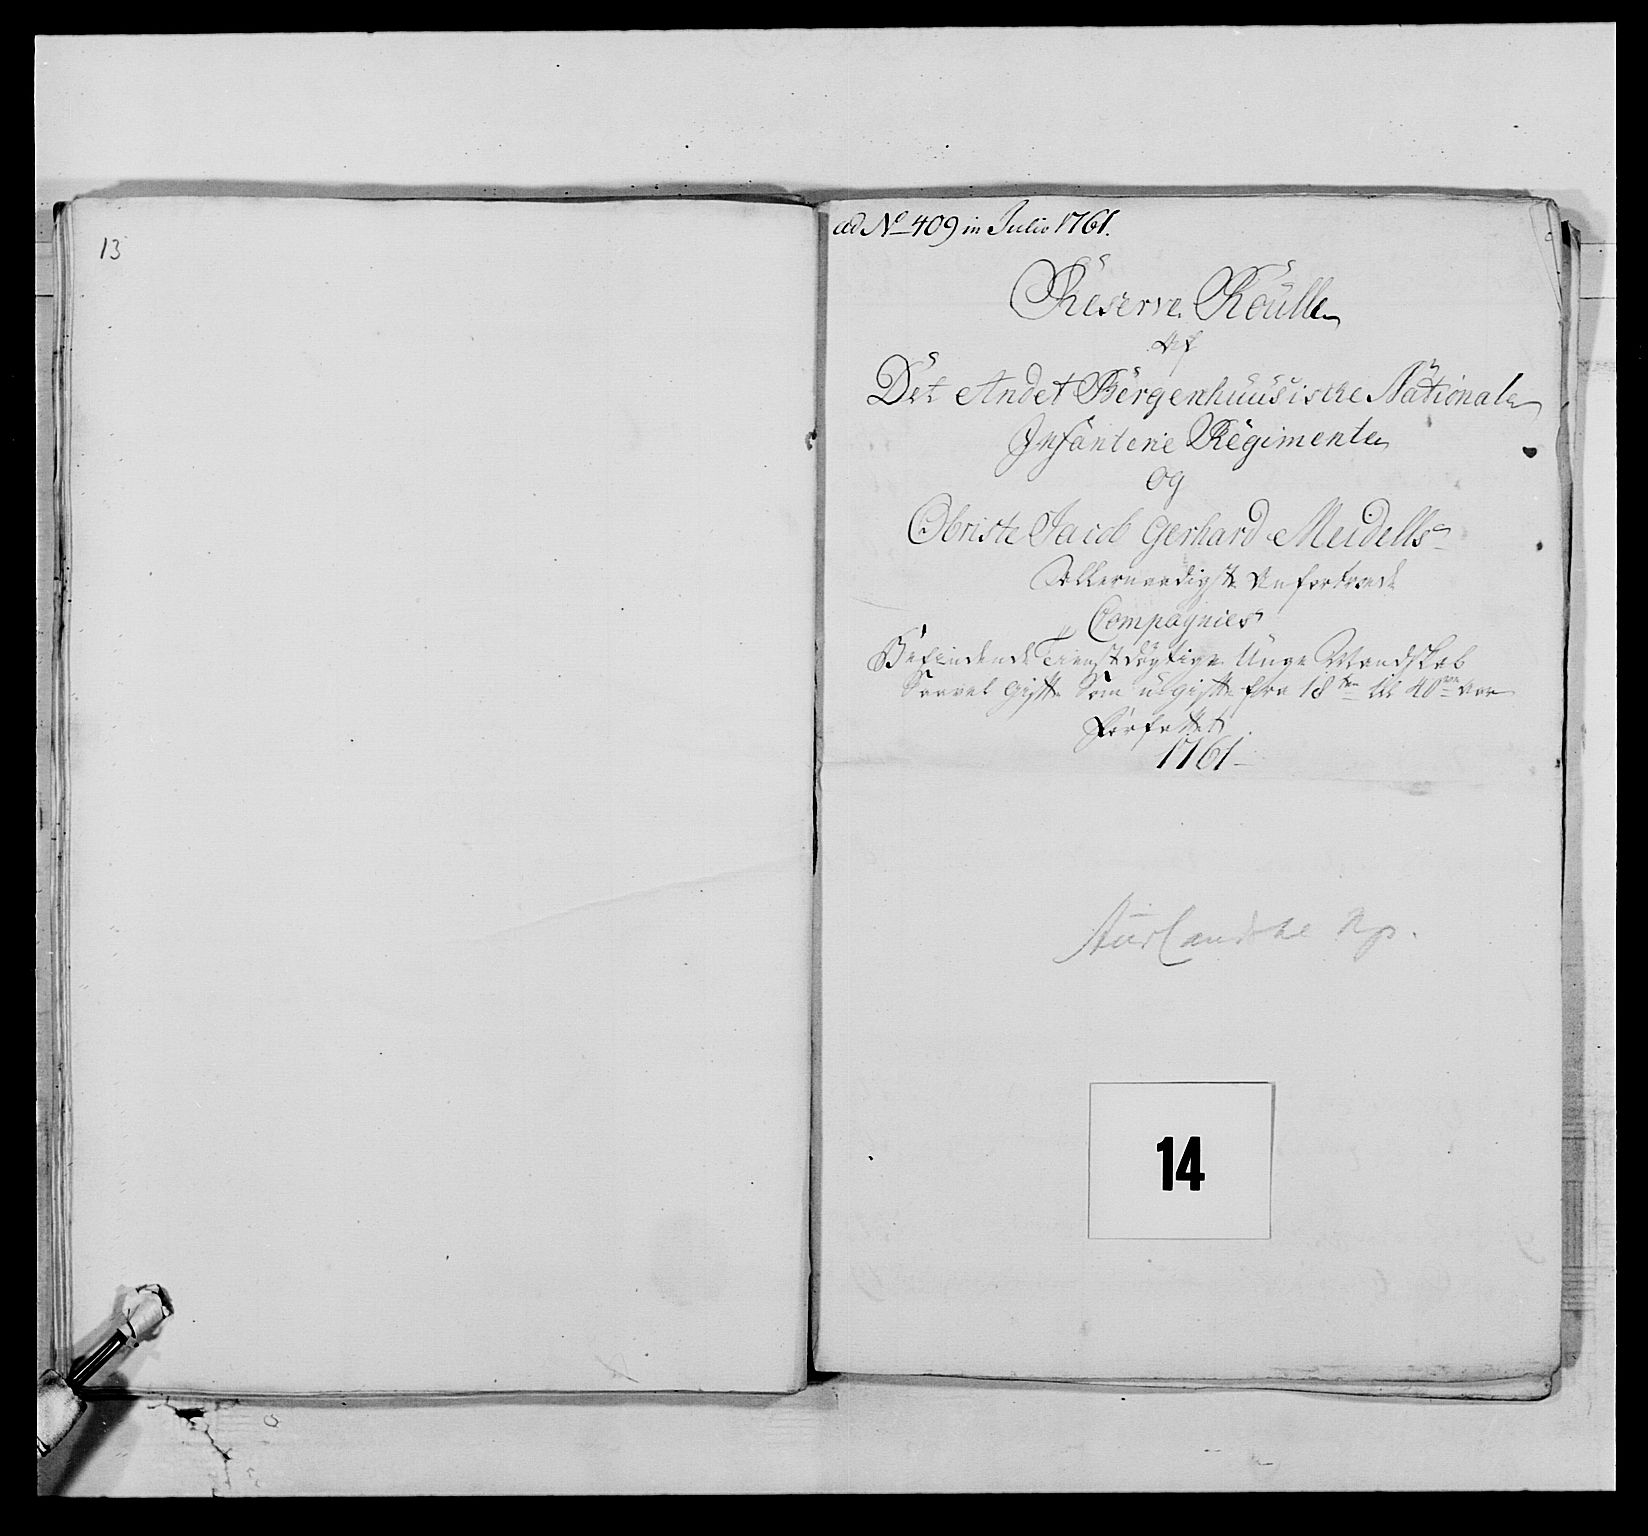 13
ad No 409 in Julio 1761.
Reserve Roulle
Af
Det Andet Bergenhuusiske National
Infanterie Regimente
og
Obriste Jacob Gerhard Meidells
Allernaadigst Anfortroede
Compagnies
Befindende Tienstdygtige Unge Mandskab
Saavel Gifte Som ugifte fra 18ten til 40ve Aar
Forfattet
1761
Aurlandske Kp.
14